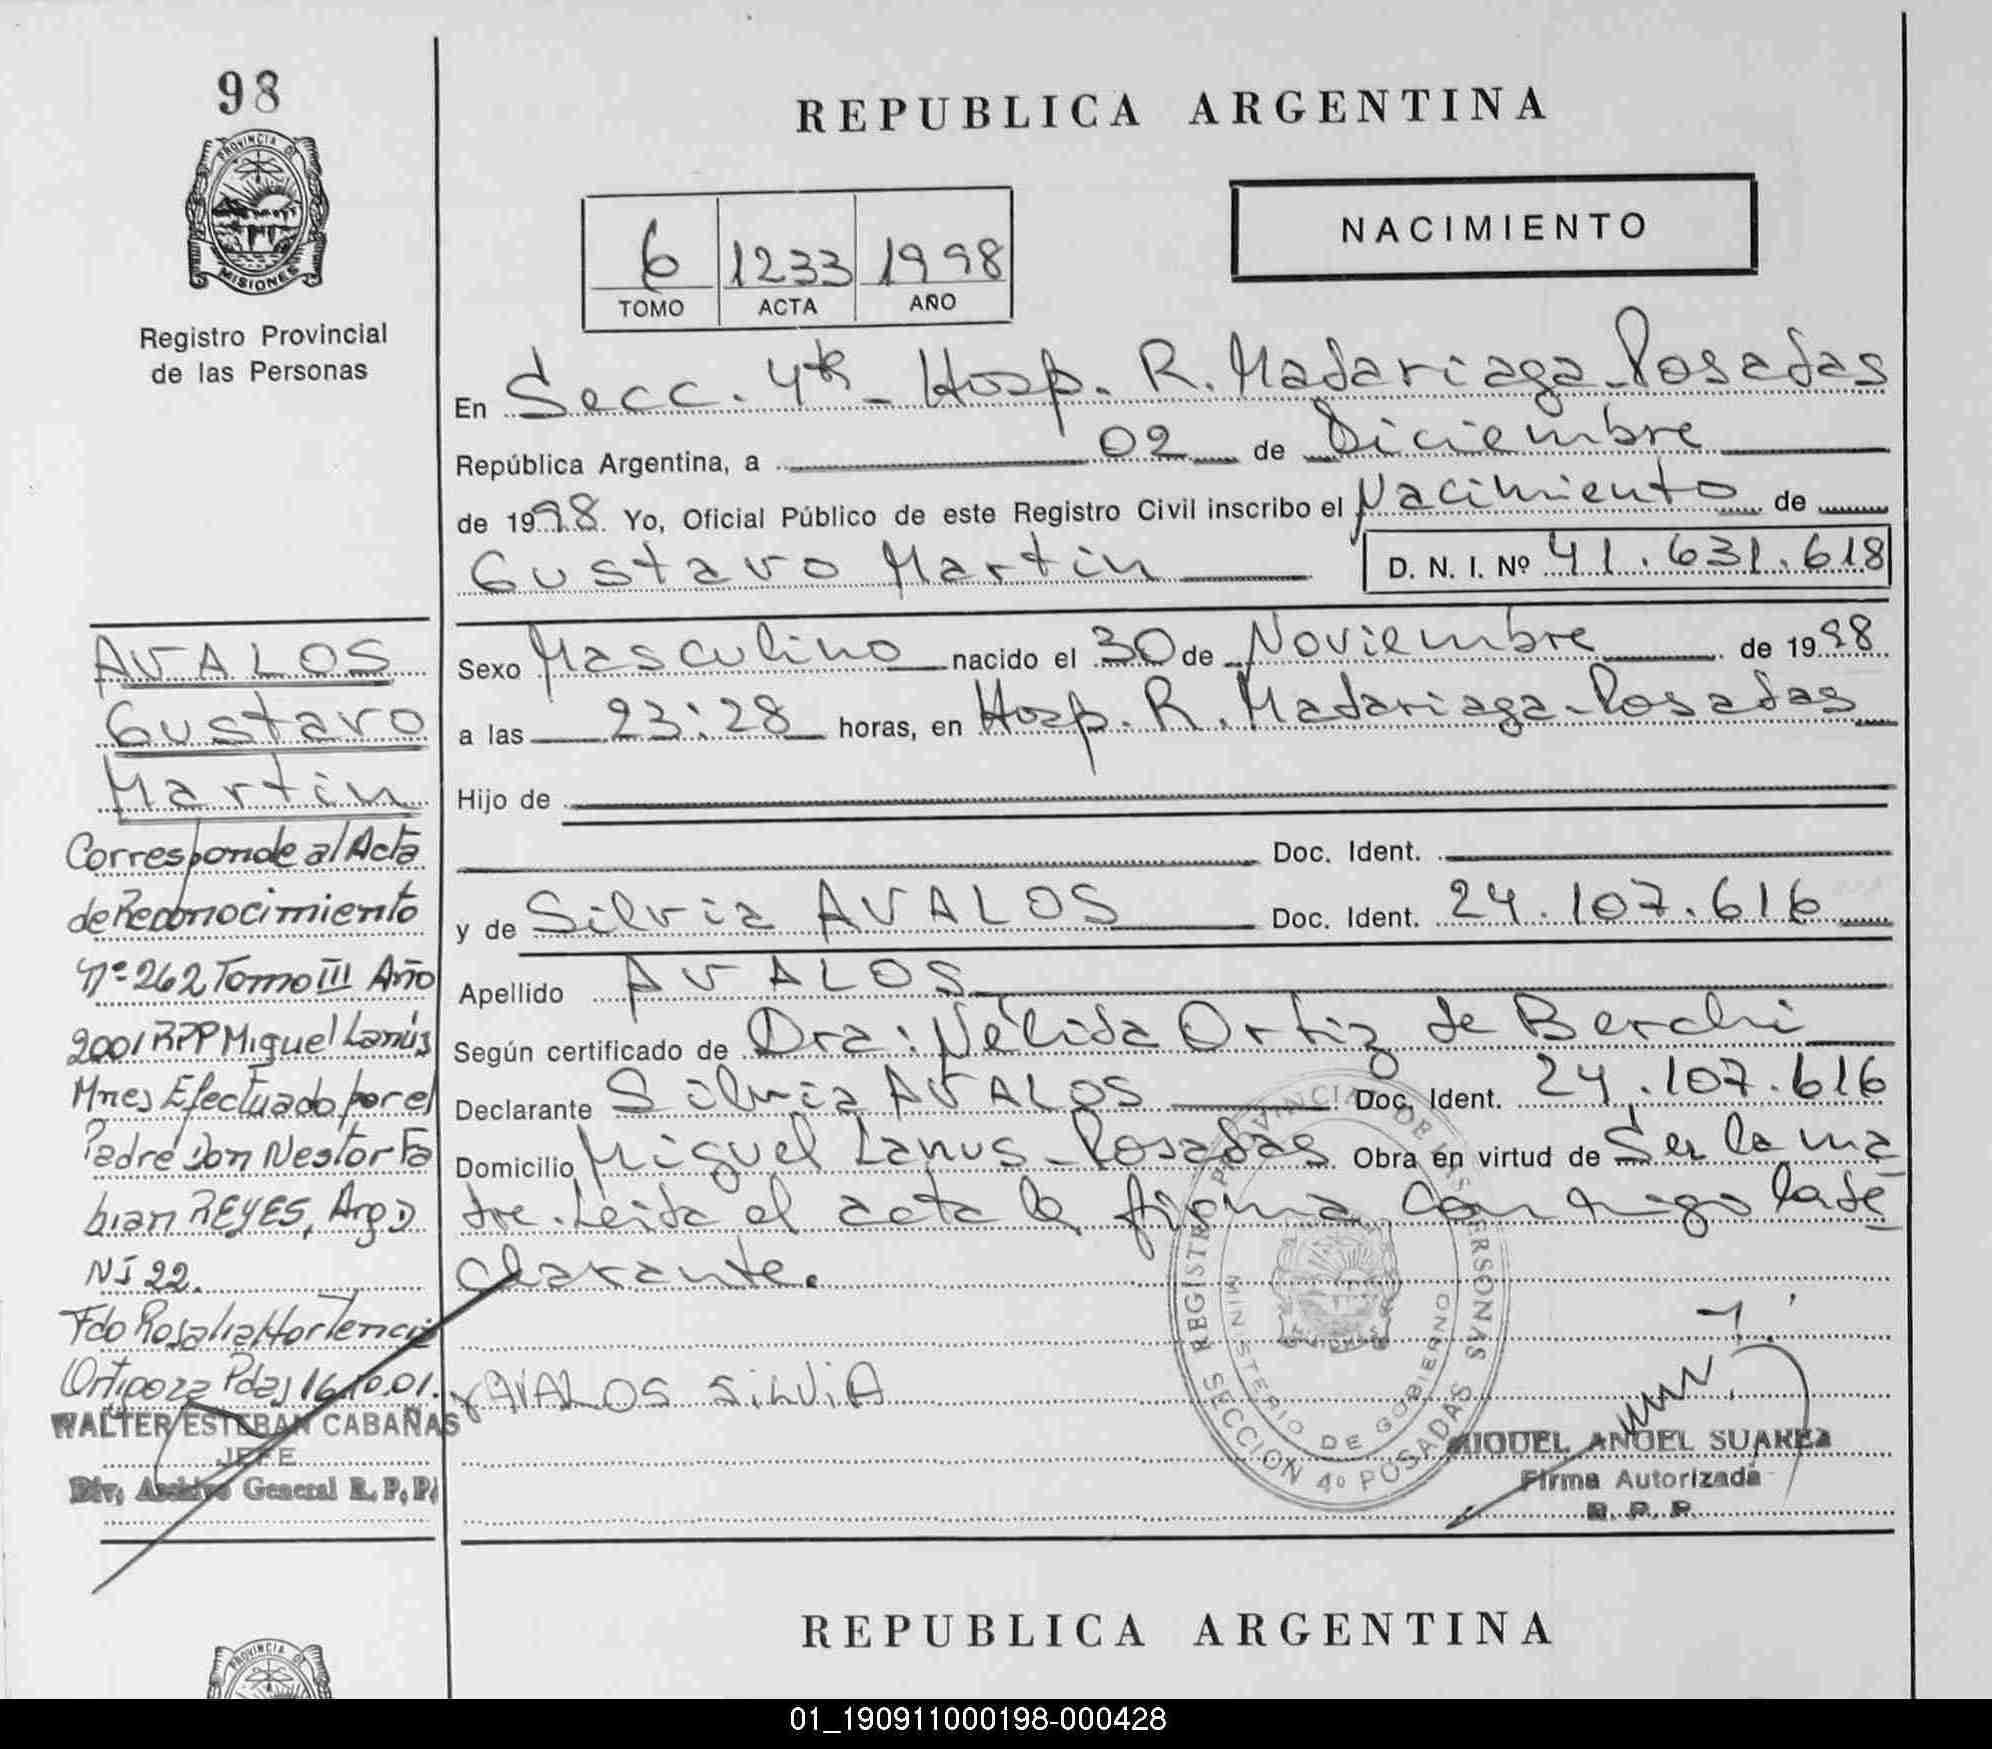 98
PROVINCIA DE
MISIONES
Registro Provincial
de las Personas
REPUBLICA ARGENTINA
6 1233 1998
TOMO ACTA AÑO
NACIMIENTO
En Secc. 4ta Hosp. R. Madariaga - Posadas
República Argentina, a 02 de Diciembre
de 1998. Yo, Oficial Público de este Registro Civil inscribo el Nacimiento de
Gustavo Martin D. N. I. Nº 41.631.618
Sexo Masculino nacido el 30 de Noviembre de 1998
a las 23:28 horas, en Hosp. R. Madariaga - Posadas
Hijo de
Doc. Ident.
y de Silvia AVALOS Doc. Ident. 24.107.616
Apellido AVALOS
Según certificado de Dra: Nélida Ortiz de Berchi
Declarante Silvia AVALOS Doc. Ident. 24.107.616
Domicilio Miguel Lanus - Posadas Obra en virtud de Ser la ma
dre. Leída el acta la firma conmigo la de
clarante.
AVALOS SILVIA
AVALOS
Gustavo
Martin
Corresponde al Acta
de Reconocimiento
Nº 262 Tomo III Año
2001 RPP Miguel Lanús
Mnes Efectuado por el
Padre Don Nestor Fa
bian REYES, Arg. D
NI 22.
Fdo Rosalia Hortencia
Ortigoza Pdas 16.10.01.
WALTER ESTEBAN CABAÑAS
JEFE
Div. Archivo General R. P. P.
REGISTRO PROVINCIAL DE LAS PERSONAS
MINISTERIO DE GOBIERNO
SECCION 4º POSADAS
MIGUEL ANGEL SUAREZ
Firma Autorizada
R. P. P.
REPUBLICA ARGENTINA
PROVINCIA DE
01_190911000198-000428